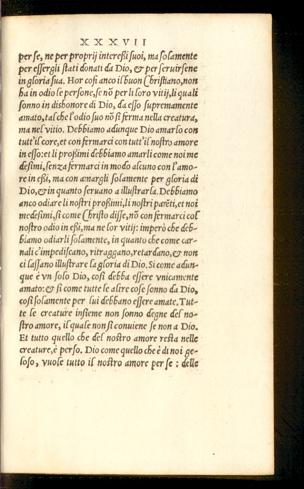 XXXVII
per se, ne per proprij interessi suoi, ma solamente
per essergli stati donati da Dio, & per seruirsene
in gloria sua. Hor cosi anco il buon Christiano, non
ha in odio le persone, se nõ per li loro vitij, li quali
sonno in dishonore di Dio, da esso supremamente
amato, tal che l'odio suo nõ si ferma nella creatura,
ma nel vitio. Debbiamo adunque Dio amarlo con
tutt'il core, et con fermarci con tutt'il nostro amore
in esso: et li prossimi debbiamo amarli come noi me
desimi, senza fermarci in modo alcuno con l'amo-
re in essi, ma con amargli solamente per gloria di
Dio, & in quanto seruano a illustrarla. Debbiamo
anco odiare li nostri prossimi, li nostri parẽti, et noi
medesimi, si come Christo disse, nõ con fermarci col
nostro odio in essi, ma ne lor vitij: imperò che deb-
biamo odiarli solamente, in quanto che come car-
nali c'impediscano, ritraggano, retardano, & non
ci lassano illustrare la gloria di Dio. Si come adun-
que è vn solo Dio, cosi debba essere vnicamente
amato: & si come tutte le altre cose sonno da Dio,
cosi solamente per lui debbano essere amate. Tut-
te le creature insieme non sonno degne del no-
stro amore, il quale non si conuiene se non a Dio.
Et tutto quello che del nostro amore resta nelle
creature, è perso. Dio come quello che è di noi ge-
loso, vuole tutto il nostro amore per se: delle